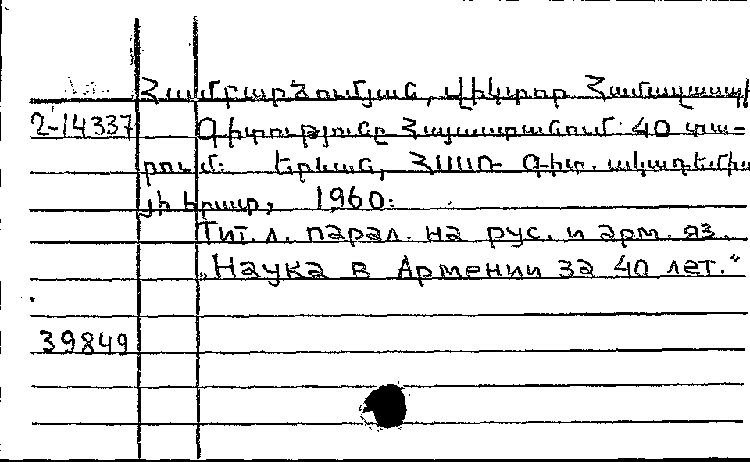 Համբարձումյան, Վիկտոր Համազասպի
2-14337 Գիտությունը Հայաստանում 40 տա-
րում: Երևան, ՀՍՍՌ Գիտ. ակադեմիա-
յի հրատ, 1960:
Тит. л. парал. на рус. и арм. яз.
„Наука в Армении за 40 лет.“
39849